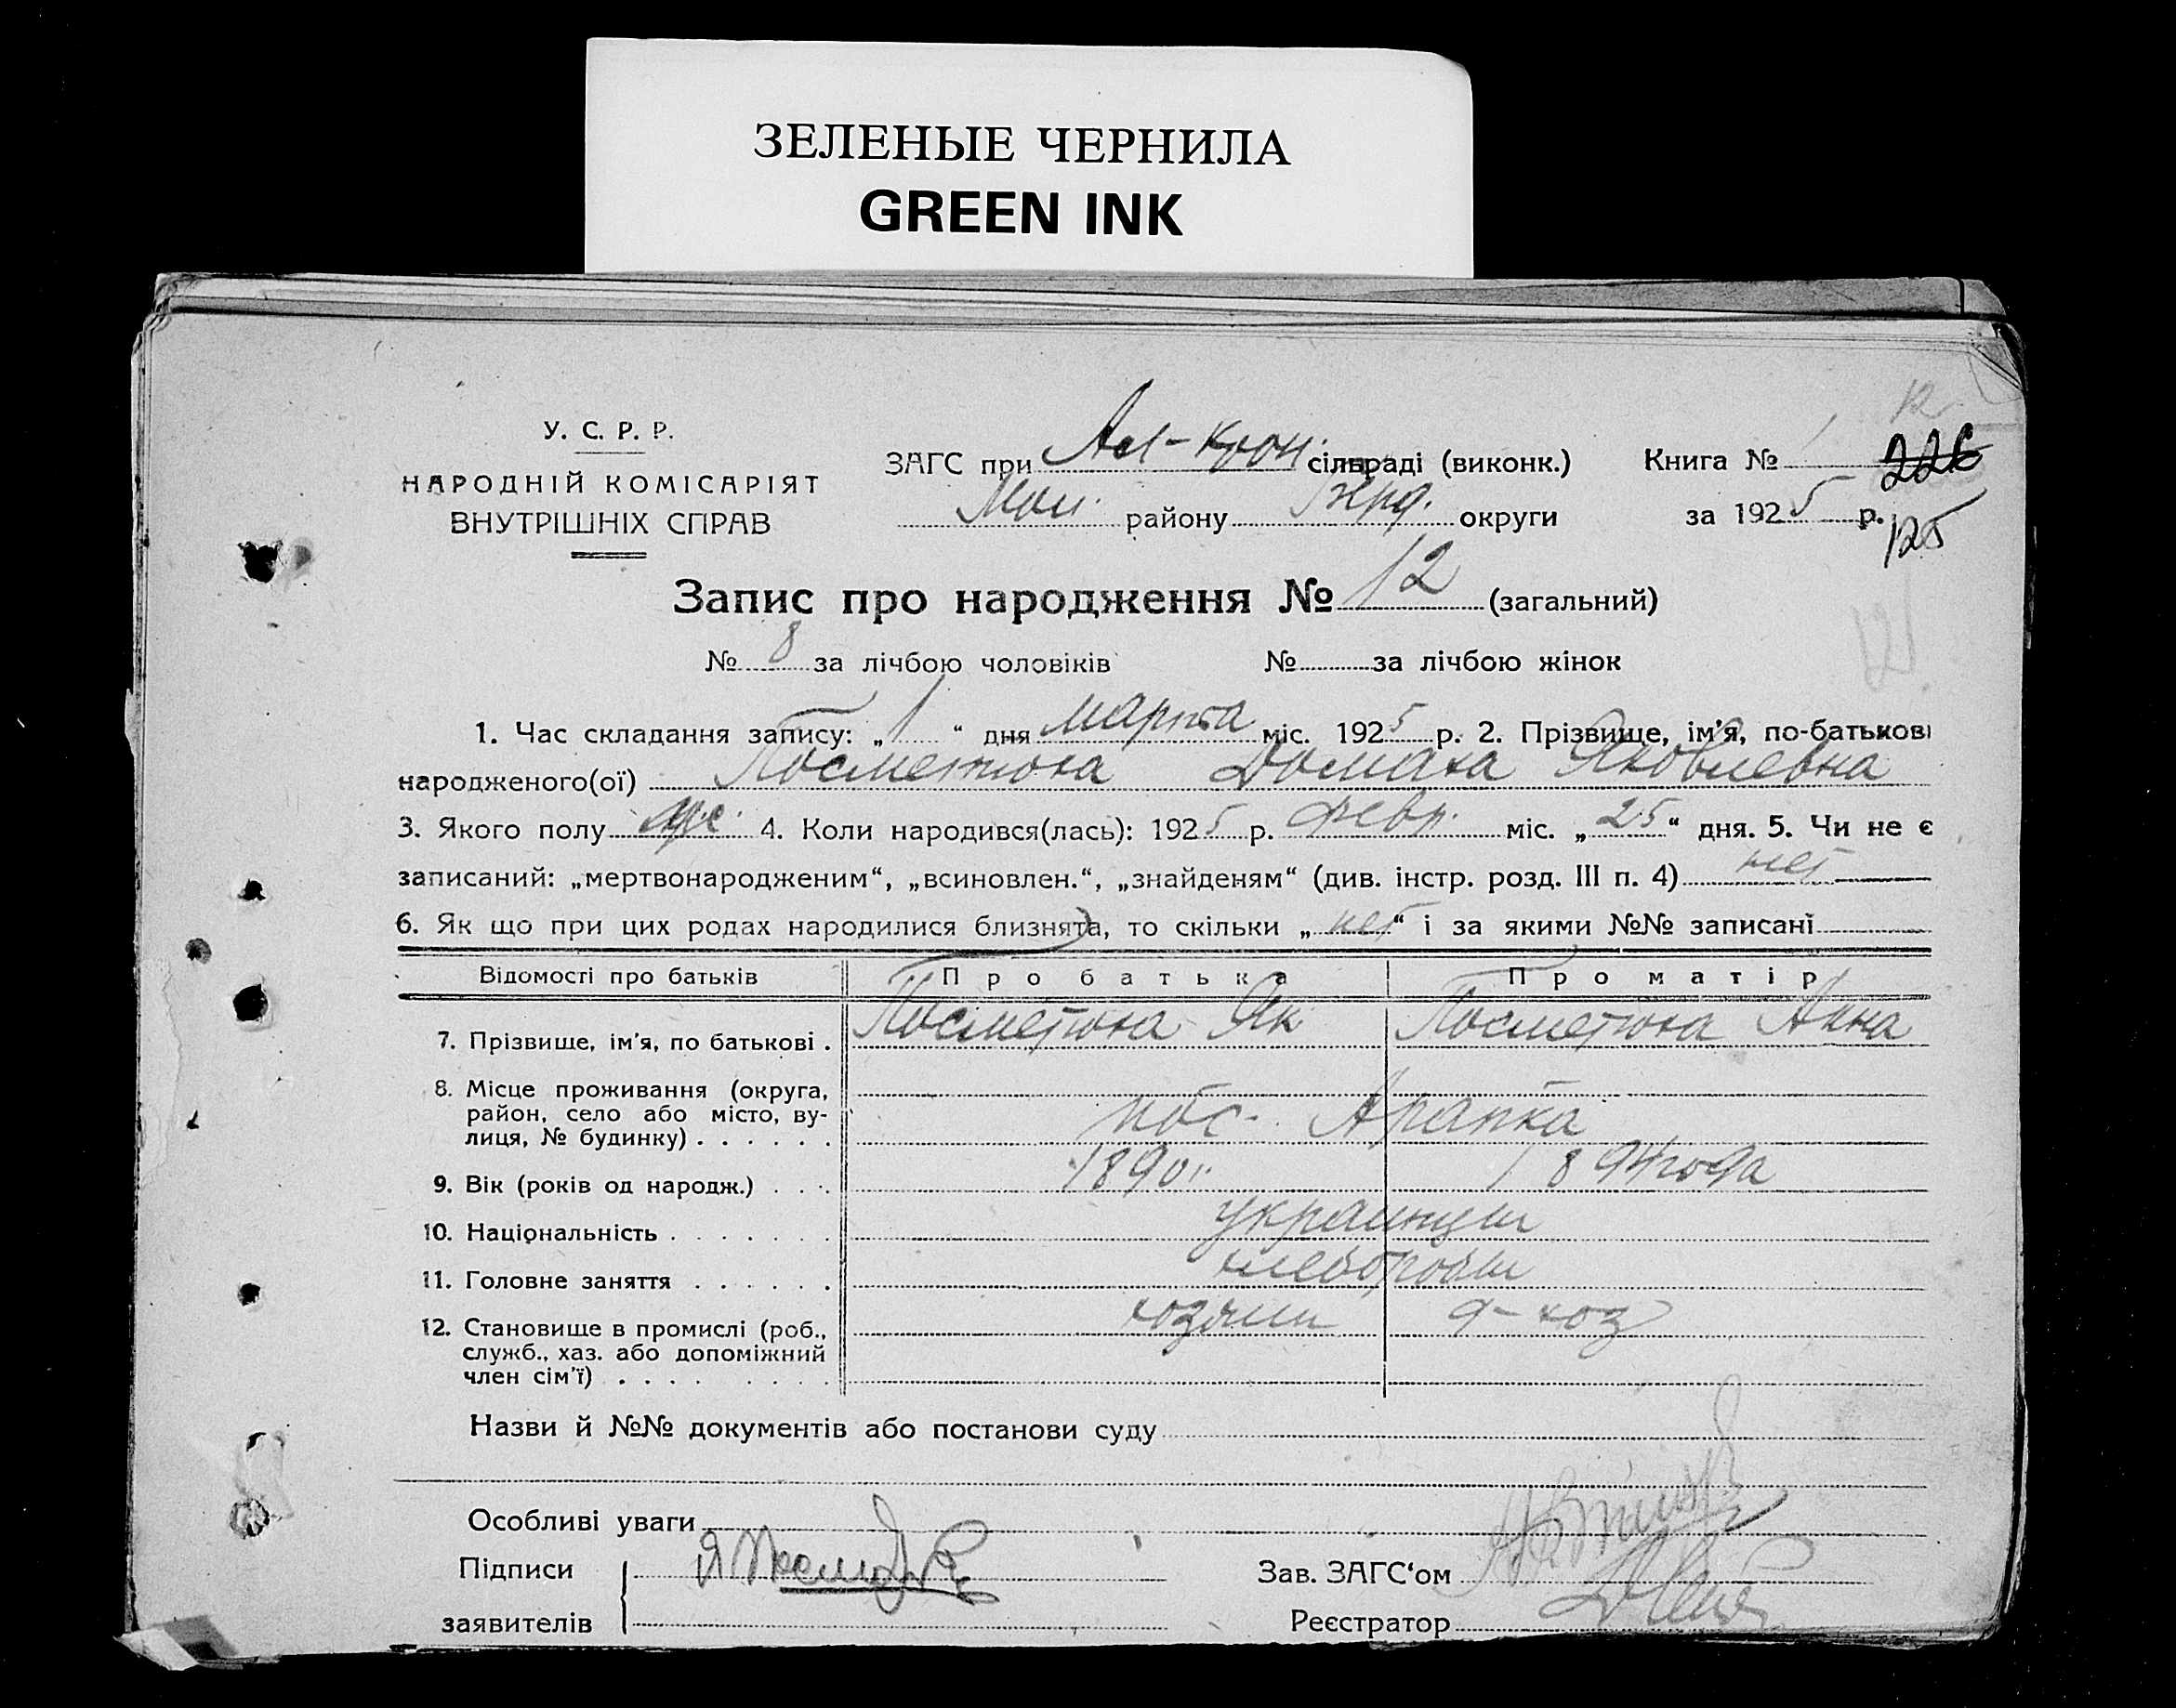 ЗЕЛЕНЫЕ ЧЕРНИЛА
GREEN INK
У. С. Р. Р.
НАРОДНІЙ КОМІСАРІЯТ
ВНУТРІШНІХ СПРАВ
12
ЗАГС при сільраді (виконк.) Книга № 226
району округи за 1925 р. 125
Запис про народження № 12 (загальний)
121
№ 8 за лічбою чоловіків № за лічбою жінок
1. Час складання запису: „1“ дня марта міс. 1925 р. 2. Прізвище, ім'я, по-батькові
народженого(ої) Посметюха Домаха Яковлевна
3. Якого полу 4. Коли народився(лась): 1925 р. февр. міс. „25“ дня. 5. Чи не є
записаний: „мертвонародженим“, „всиновлен.“, „знайденям“ (див. інстр. розд. III п. 4) нет
6. Як що при цих родах народилися близнята, то скільки „нет“ і за якими №№ записані
Відомості про батьків Про батька Про матір
7. Прізвище, ім'я, по батькові . Посметюха Як Посметюха Анна
8. Місце проживання (округа,
район, село або місто, ву-
лиця, № будинку) . . . . . . пос. Арапка
9. Вік (років од народж.) . . . 1890г. 1894 года
10. Національність . . . . . . . украинцы
11. Головне заняття . . . . . . хлеборобы
12. Становище в промислі (роб., хозяин д-хоз
служб., хаз. або допоміжний
член сім'ї) . . . . . . . . .
Назви й №№ документів або постанови суду
Особливі уваги
Підписи
Зав. ЗАГС‘ом
заявителів
Реєстратор